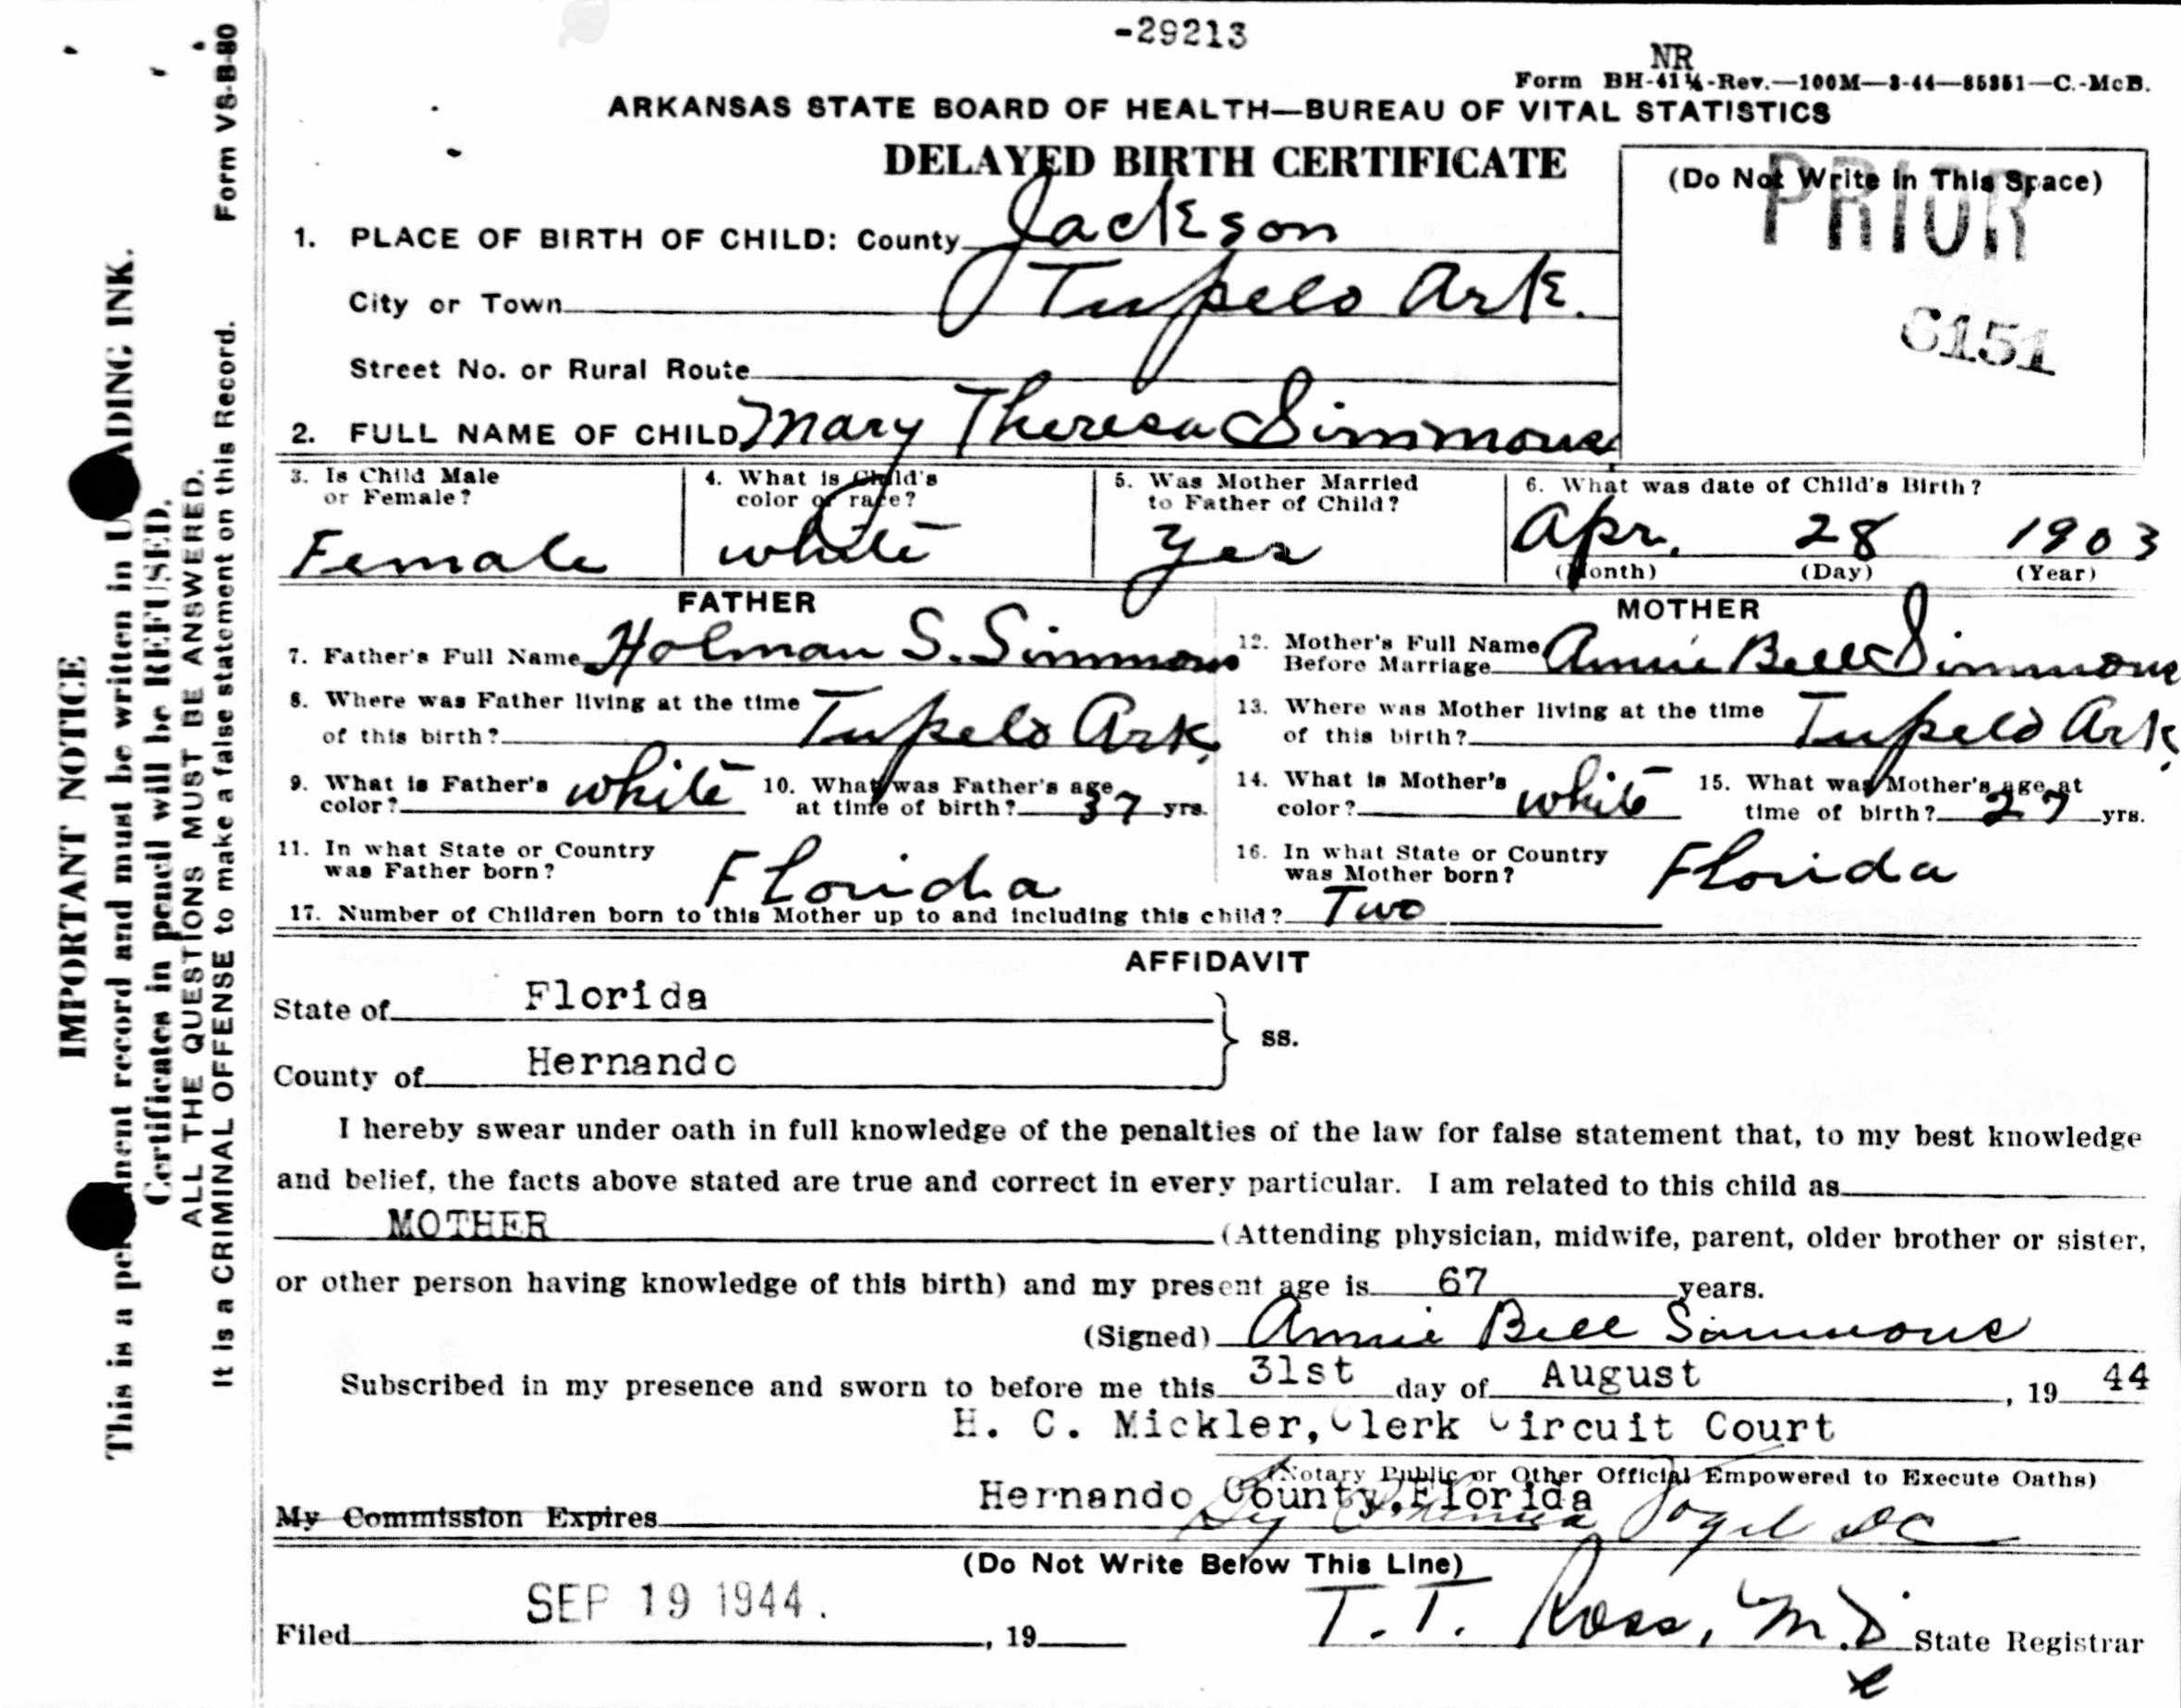 -29213
NR
Form BH-41¼-Rev.—100M—3-44—85351—C.-McB.
ARKANSAS STATE BOARD OF HEALTH—BUREAU OF VITAL STATISTICS
DELAYED BIRTH CERTIFICATE
(Do Not Write in This Space)
PRIOR
6151
1. PLACE OF BIRTH OF CHILD: County Jackson
City or Town Tupelo Ark.
Street No. or Rural Route
2. FULL NAME OF CHILD Mary Theresa Simmons
3. Is Child Male or Female? Female
4. What is Child's color or race? white
5. Was Mother Married to Father of Child? Yes
6. What was date of Child's Birth?
Apr. 28 1903
(Month) (Day) (Year)
FATHER
7. Father's Full Name Holman S. Simmons
8. Where was Father living at the time of this birth? Tupelo Ark.
9. What is Father's color? white
10. What was Father's age at time of birth? 37 yrs.
11. In what State or Country was Father born? Florida
MOTHER
12. Mother's Full Name Before Marriage Annie Bell Simmons
13. Where was Mother living at the time of this birth? Tupelo Ark.
14. What is Mother's color? white
15. What was Mother's age at time of birth? 27 yrs.
16. In what State or Country was Mother born? Florida
17. Number of Children born to this Mother up to and including this child? Two
AFFIDAVIT
State of Florida
ss.
County of Hernando
I hereby swear under oath in full knowledge of the penalties of the law for false statement that, to my best knowledge
and belief, the facts above stated are true and correct in every particular. I am related to this child as
MOTHER (Attending physician, midwife, parent, older brother or sister,
or other person having knowledge of this birth) and my present age is 67 years.
(Signed) Annie Bell Simmons
Subscribed in my presence and sworn to before me this 31st day of August, 1944
H. C. Mickler, Clerk Circuit Court
(Notary Public or Other Official Empowered to Execute Oaths)
Hernando County, Florida
My Commission Expires
By DC
(Do Not Write Below This Line)
SEP 19 1944.
Filed , 19
T. T. Ross, M.D. State Registrar
Form VS-B-80
IMPORTANT NOTICE
This is a permanent record and must be written in UNFADING INK.
Certificates in pencil will be REFUSED.
ALL THE QUESTIONS MUST BE ANSWERED.
It is a CRIMINAL OFFENSE to make a false statement on this Record.